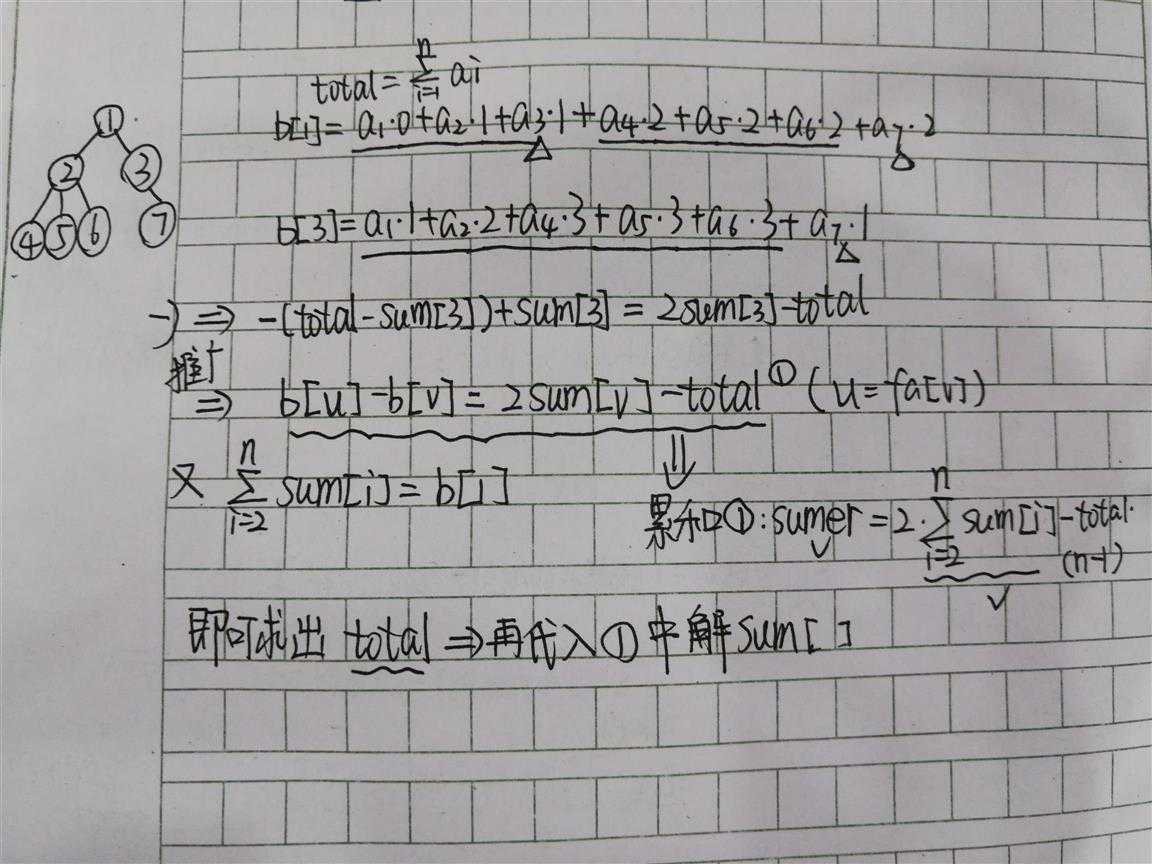 total = \sum_{i=1}^{n} ai
b[1] = a₁·0+a₂·1+a₃·1+a₄·2+a₅·2+a₆·2+a₇·2
①
② ③
④ ⑤ ⑥ ⑦
b[3] = a₁·1+a₂·2+a₄·3+a₅·3+a₆·3+a₇·1
-) ⇒ -(total-sum[3])+sum[3] = 2sum[3]-total
推广
⇒ b[u]-b[v] = 2sum[v]-total ① (u=fa[v])
⇓
又 \sum_{i=2}^{n} sum[i] = b[1]
累加①: sumer = 2·\sum_{i=2}^{n} sum[i]-total·
(n-1)
即可求出 total ⇒ 再代入①中解sum[]